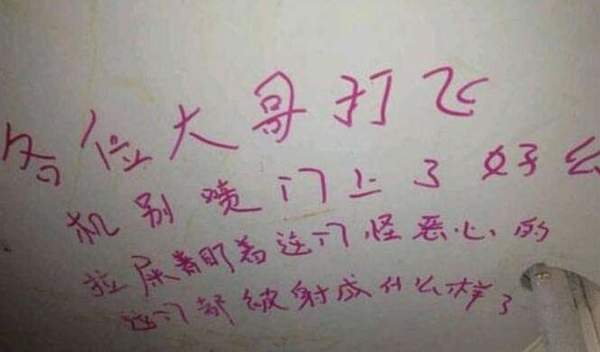 各位大哥打飞
机别喷门上了好么
拉屎着盯着这门怪恶心的
这门都被射成什么样了